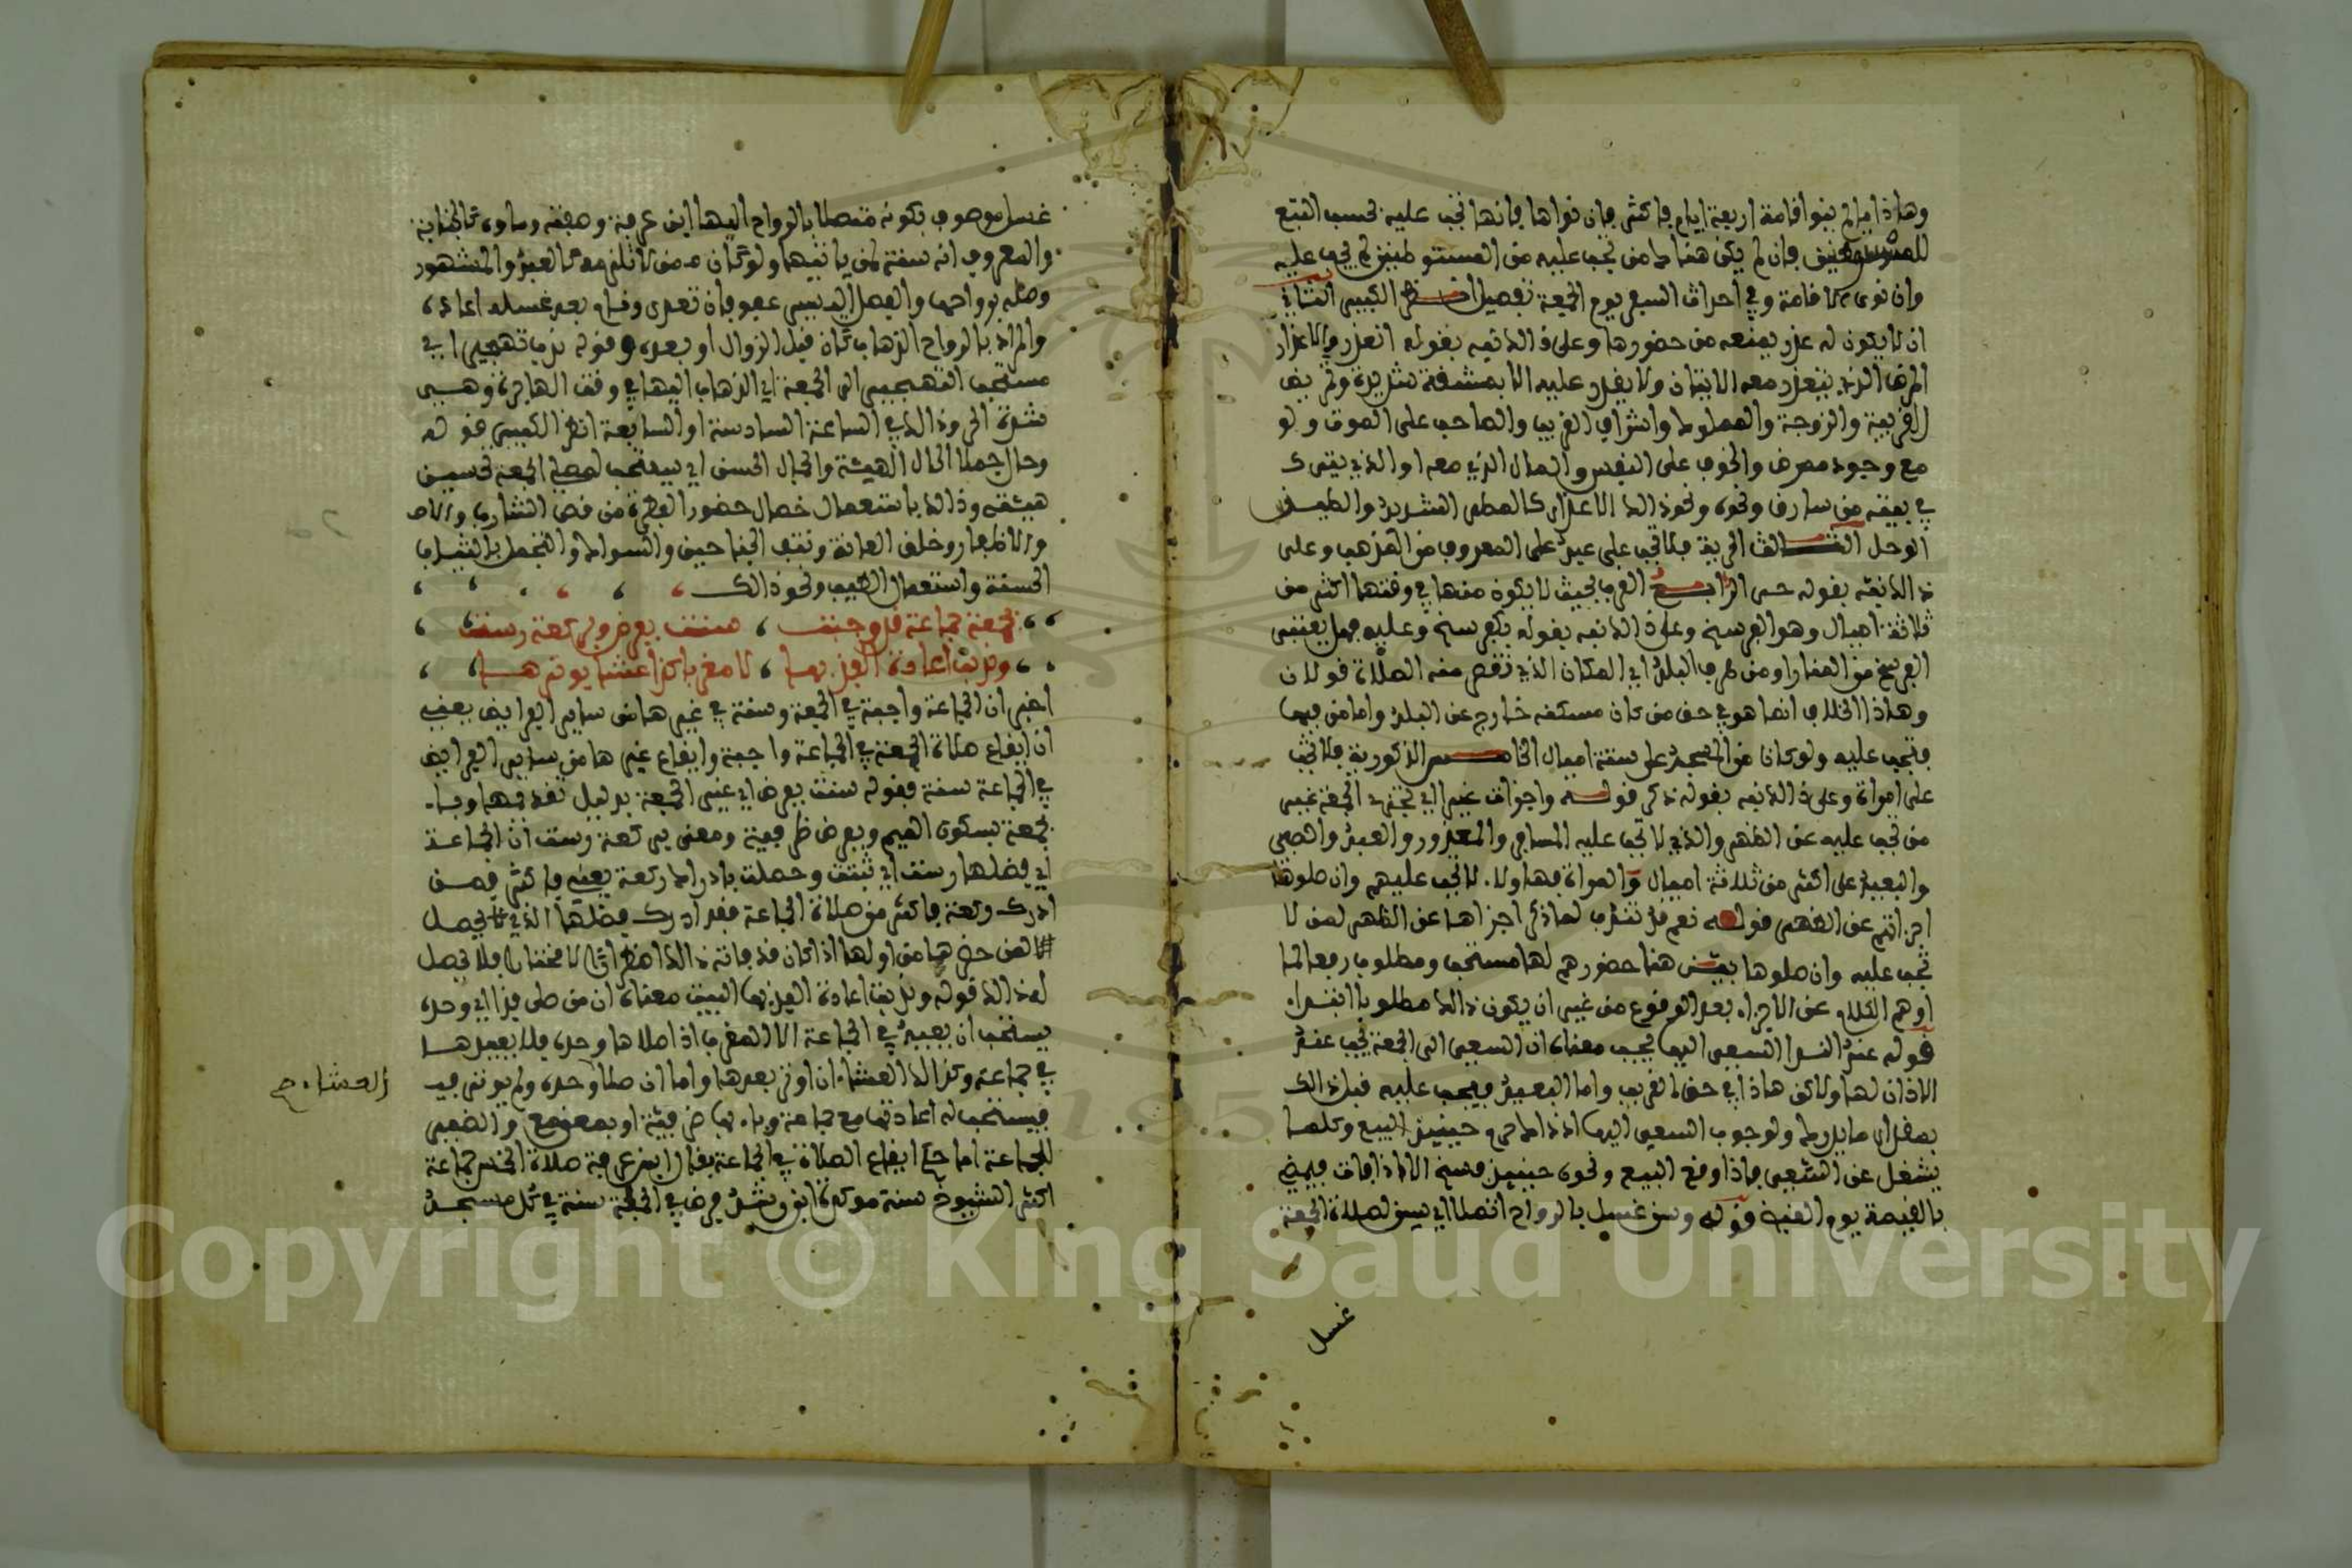 وهاذا ما لم ينو اقامة اربعة ايام فاكثر فان نواها فانها تجب عليه بحسب التبع
للمستوطنين فان لم يكن هناك من تجب عليه من المستوطنين لم تجب عليه
وان نوى الاقامة وفي احداث السفر يوم الجمعة تفصيل انظر الكبير الثاني
ان لا يكون له عذر يمنعه من حضورها وعلى ذالك نبه بقوله انعذر والاعذار
المرض الذي يتعذر معه الاتيان ولا يقدر عليه الا بمشقة شديدة وتمريض
القريب والزوجة والمملوك واشراف القريب والصاحب على الموت ولو
مع وجود ممرض والخوف على النفس والمال الذي معه او الذي يترك
في بيته من سارق ونحوه ونحو ذالك الاعذار كالمطر الشديد والطين
الوحل الثالث الحرية فلا تجب على عبد على المعروف من المذهب وعلى
ذالك نبه بقوله حر الرابع القرب بحيث لا يكون منها في وقتها اكثر من
ثلاثة اميال وهو الفرسخ وعلى ذالك نبه بقوله بكفرسخ وعليه فهل يعتبر
الفرسخ من المنار او من طرف البلد اي المكان الذي تقصر منه الصلاة قولان
وهاذا الخلاف انما هو في حق من كان مسكنه خارج عن البلد واما من فيها
فتجب عليه ولو كان من المسجد على ستة اميال الخامس الذكورية فلا تجب
على امراة وعلى ذالك نبه بقوله ذكر قوله واجزات غيرا اي تجزئ الجمعة غير
من تجب عليه عن الظهر والذي لا تجب عليه المسافر والمعذور والعبد والصبي
والبعيد على اكثر من ثلاثة اميال والمراة فهاولاء لا تجب عليهم وان صلوها
اجزاتهم عن الظهر قوله نعم قد تندب لما ذكر اجزاها عن الظهر لمن لا
تجب عليه وان صلوها بين هنا حضورهم لها مستحب ومطلوب رفعا لما
اوهم الكلام عن الاجزاء بعد الوقوع من غير ان يكون ذالك مطلوبا ابتداء
قوله عند الندا السعي اليها يجب معناه ان السعي الى الجمعة يجب عند
الاذان لها ولاكن هاذا في حق القريب واما البعيد فيجب عليه قبل ذالك
بمقدار ما يدرك ولوجوب السعي اليها اذ ذاك حرم حينئذ البيع وكلما
يشغل عن السعي فاذا وقع البيع ونحوه حينئذ فسخ الا اذا فات فيمضي
بالقيمة يوم القبض قوله وسن غسل بالرواح اتصلا اي يسن لصلاة الجمعة
غسل
غسل موصوف بكونه متصلا بالرواح اليها ابن عرفة وصفته وماوه كالجنابة
والمعروف انه سنة لمن ياتيها ولو كان ممن لا تلزمه كالعبد والمشهور
وصله برواحها والفصل اليسير عفو فان تعدى ونام بعد غسله اعاده
والمراد بالرواح الذهاب كان قبل الزوال او بعده وقوله ندب تهجير اي
يستحب التهجير الى الجمعة اي الذهاب اليها في وقت الهاجرة وهي
شدة الحر وذالك في الساعة السادسة او السابعة انظر الكبير قوله
وحال جملا الحال الهيئة والجمال الحسن اي يستحب لمصلي الجمعة تحسين
هيئته وذالك باستعمال خصال الفطرة من قص الشارب
والاظفار وحلق العانة ونتف الجناحين والسواك والتجمل بالثياب
الحسنة واستعمال الطيب ونحو ذالك
بجمعة جماعة قد وجبت سنت بفرض وبركعة رست
وندبت اعادة الفذ بها لا مغربا كذا عشا يوترها
اخبر ان الجماعة واجبة في الجمعة وسنة في غيرها من ساير الفرايض يعني
ان ايقاع صلاة الجمعة في الجماعة واجبة وايقاع غيرها من ساير الفرايض
في الجماعة سنة فقوله سنت بفرض اي غير الجمعة بدليل تقديمها وباء
بجمعة بسكون الميم وبفرض ظرفية ومعنى بركعة رست ان الجماعة
اي فضلها رست اي ثبتت وحصلت بادراك ركعة يعني فاكثر فمن
ادرك ركعة فاكثر من صلاة الجماعة فقد ادرك فضلها الذي يحصل
لمن حضرها من اولها اذا كان قد فاته ذالك اضطرارا لا مختارا فلا يحصل
له ذالك قوله وندبت اعادة الفذ بها البيت معناه ان من صلى فذا اي وحده
يستحب ان يعيد في الجماعة الا المغرب اذا صلاها وحده فلا يعيدها
في جماعة وكذالك العشاء ان اوتر بعدها واما ان صلا وحده ولم يوتر
العشاء ح
فيستحب له اعادتها مع جماعة وباء بها ظرفية او بمعنى مع والضمير
للجماعة اما حكم ايقاع الصلاة في الجماعة فقال ابن عرفة صلاة الخمس جماعة
اكثر الشيوخ سنة موكدة ابن رشد فرض في الجملة سنة في كل مسجد
Copyright © King Saud University